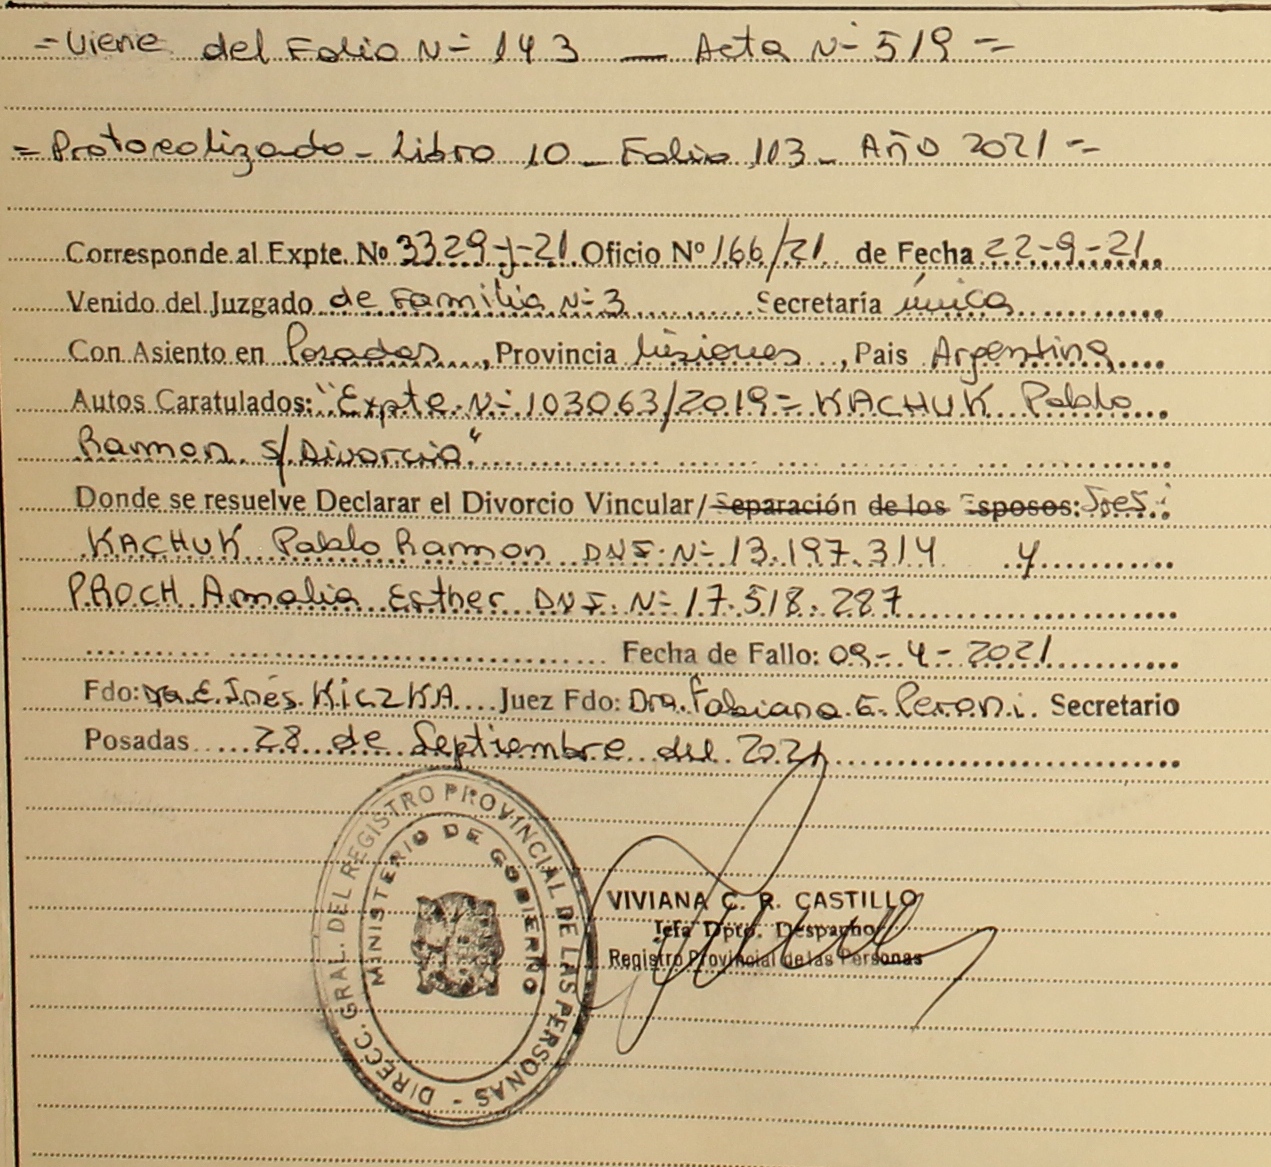 = Viene del Folio Nº 143 — Acta Nº 519 =
= Protocolizado - Libro 10 - Folio 113 - Año 2021 =
Corresponde al Expte. Nº 3329-J-21 Oficio Nº 166/21 de Fecha 22-9-21
Venido del Juzgado de Familia Nº 3 Secretaría única
Con Asiento en Posadas, Provincia Misiones, Pais Argentina
Autos Caratulados: "Expte. Nº 103063/2019 = KACHUK Pablo
Ramon s/Divorcio"
Donde se resuelve Declarar el Divorcio Vincular/Separación de los Esposos: Sres:
KACHUK Pablo Ramon DNI. Nº 13.197.314 y
PROCH Amalia Esther DNI. Nº 17.518.287
Fecha de Fallo: 09-4-2021
Fdo: Dra. E. Inés KICZKA Juez Fdo: Dra. Fabiana E. Peroni. Secretario
Posadas 28 de Septiembre del 2021
DIRECC. GRAL. DEL REGISTRO PROVINCIAL DE LAS PERSONAS -
MINISTERIO DE GOBIERNO
VIVIANA C. R. CASTILLO
Jefa Dpto. Despacho
Registro Provincial de las Personas